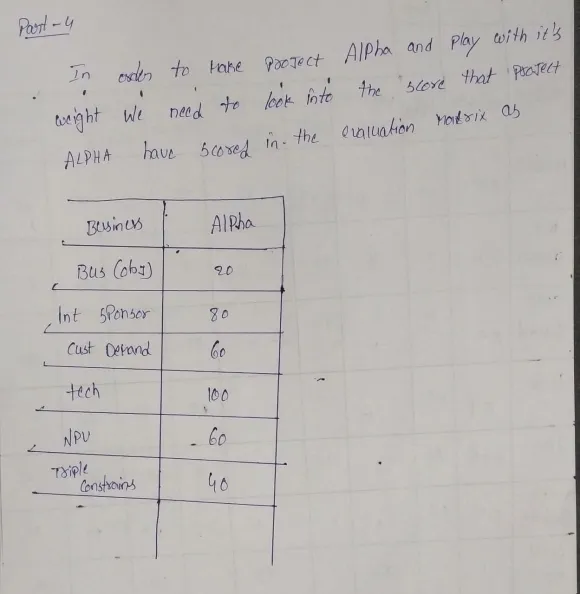 Part-4
In order to make project Alpha and play with it's
weight we need to look into the score that project
ALPHA have scored in the evaluation matrix as
Business Alpha
Bus (obj) 20
Int Sponsor 80
Cust Demand 60
tech 100
NPV 60
Triple
Constrains 40